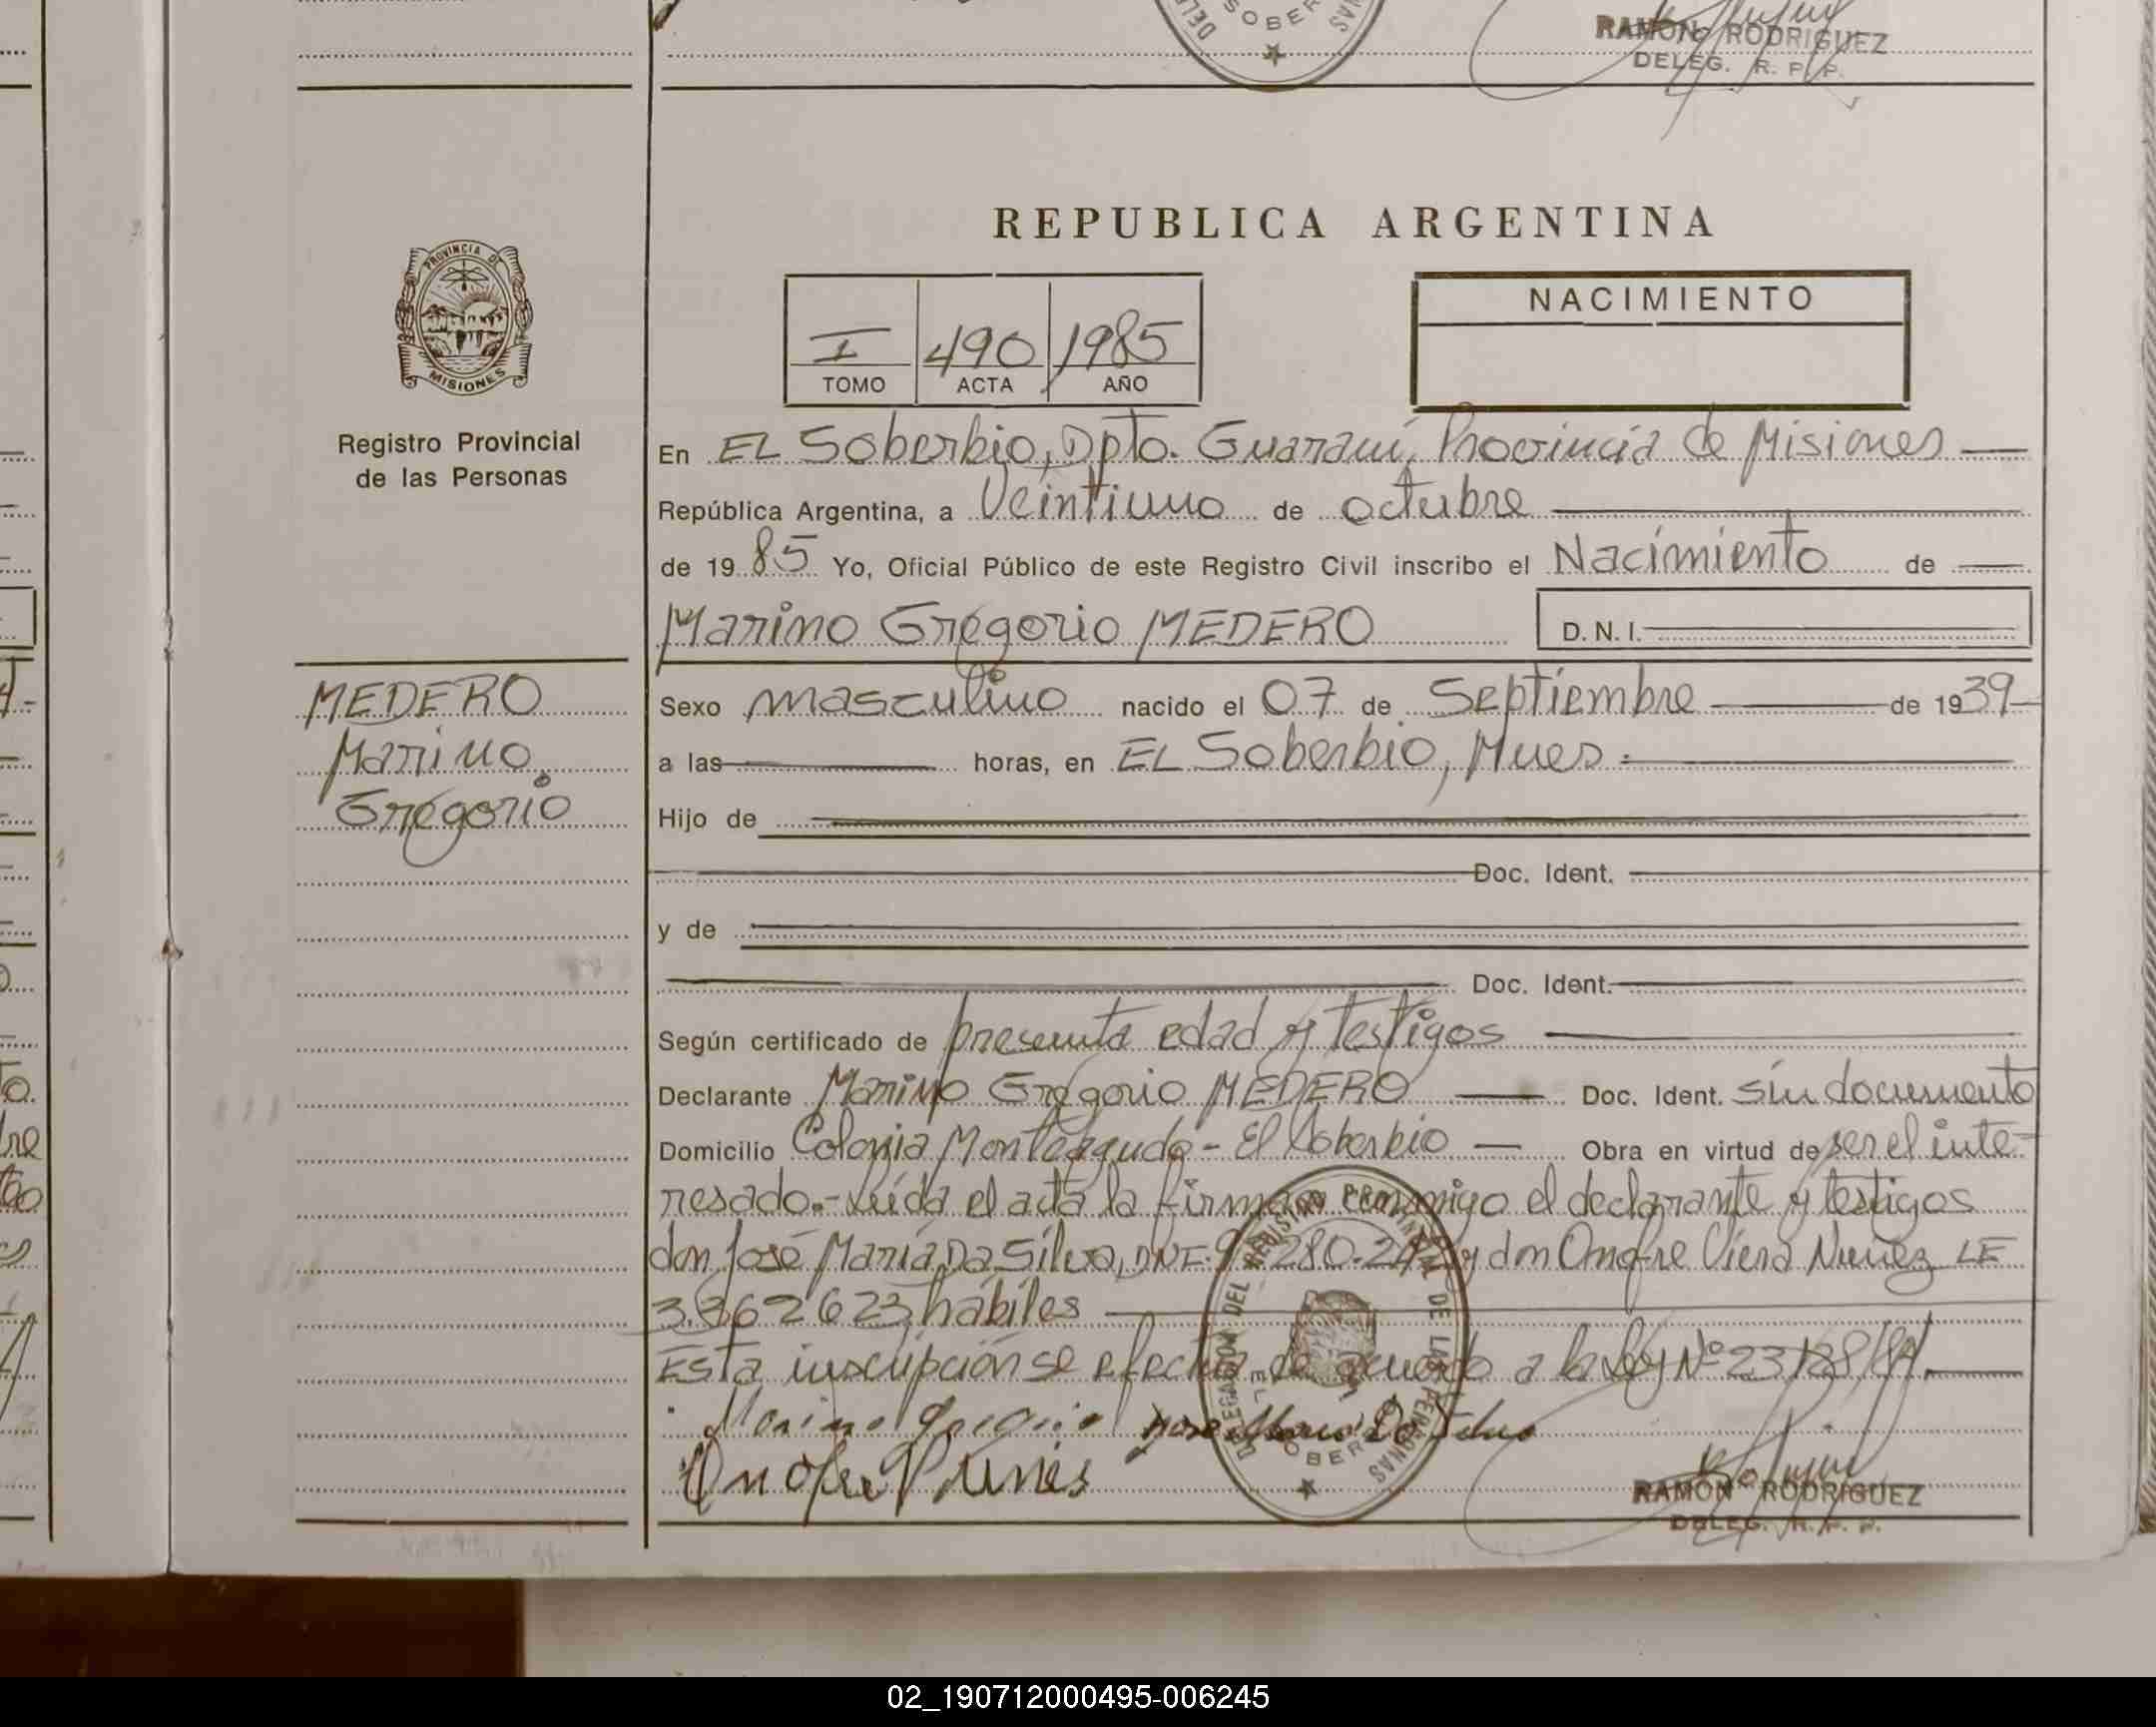 RAMON RODRIGUEZ
DELEG. R. P. P.
PROVINCIA DE
MISIONES
Registro Provincial
de las Personas
REPUBLICA ARGENTINA
I 490 1985
TOMO ACTA AÑO
NACIMIENTO
En EL Soberbio, Dpto. Guaraní, Provincia de Misiones
República Argentina, a Veintiuno de octubre
de 1985 Yo, Oficial Público de este Registro Civil inscribo el Nacimiento de
Marino Gregorio MEDERO D. N. I.
MEDERO
Marino
Gregorio
Sexo masculino nacido el 07 de Septiembre de 1939
a las horas, en EL Soberbio, Mnes.
Hijo de
Doc. Ident.
y de
Doc. Ident.
Según certificado de presunta edad y testigos
Declarante Marino Gregorio MEDERO Doc. Ident. sin documento
Domicilio Colonia Monteagudo - El Soberbio Obra en virtud de ser el inte-
resado.- Leída el acta la firman conmigo el declarante y testigos
don José María Da Silva, DNI: y don Onofre Viera Nuñez LE
hábiles
Esta inscripción se efectúa de acuerdo a la ley Nº 23128/84
Marino Gregorio Jose Maria Da Silva
Onofre V Nunes
DELEGACION DEL REGISTRO PROVINCIAL DE LAS PERSONAS
EL SOBERBIO
RAMON RODRIGUEZ
DELEG. R. P. P.
02_190712000495-006245